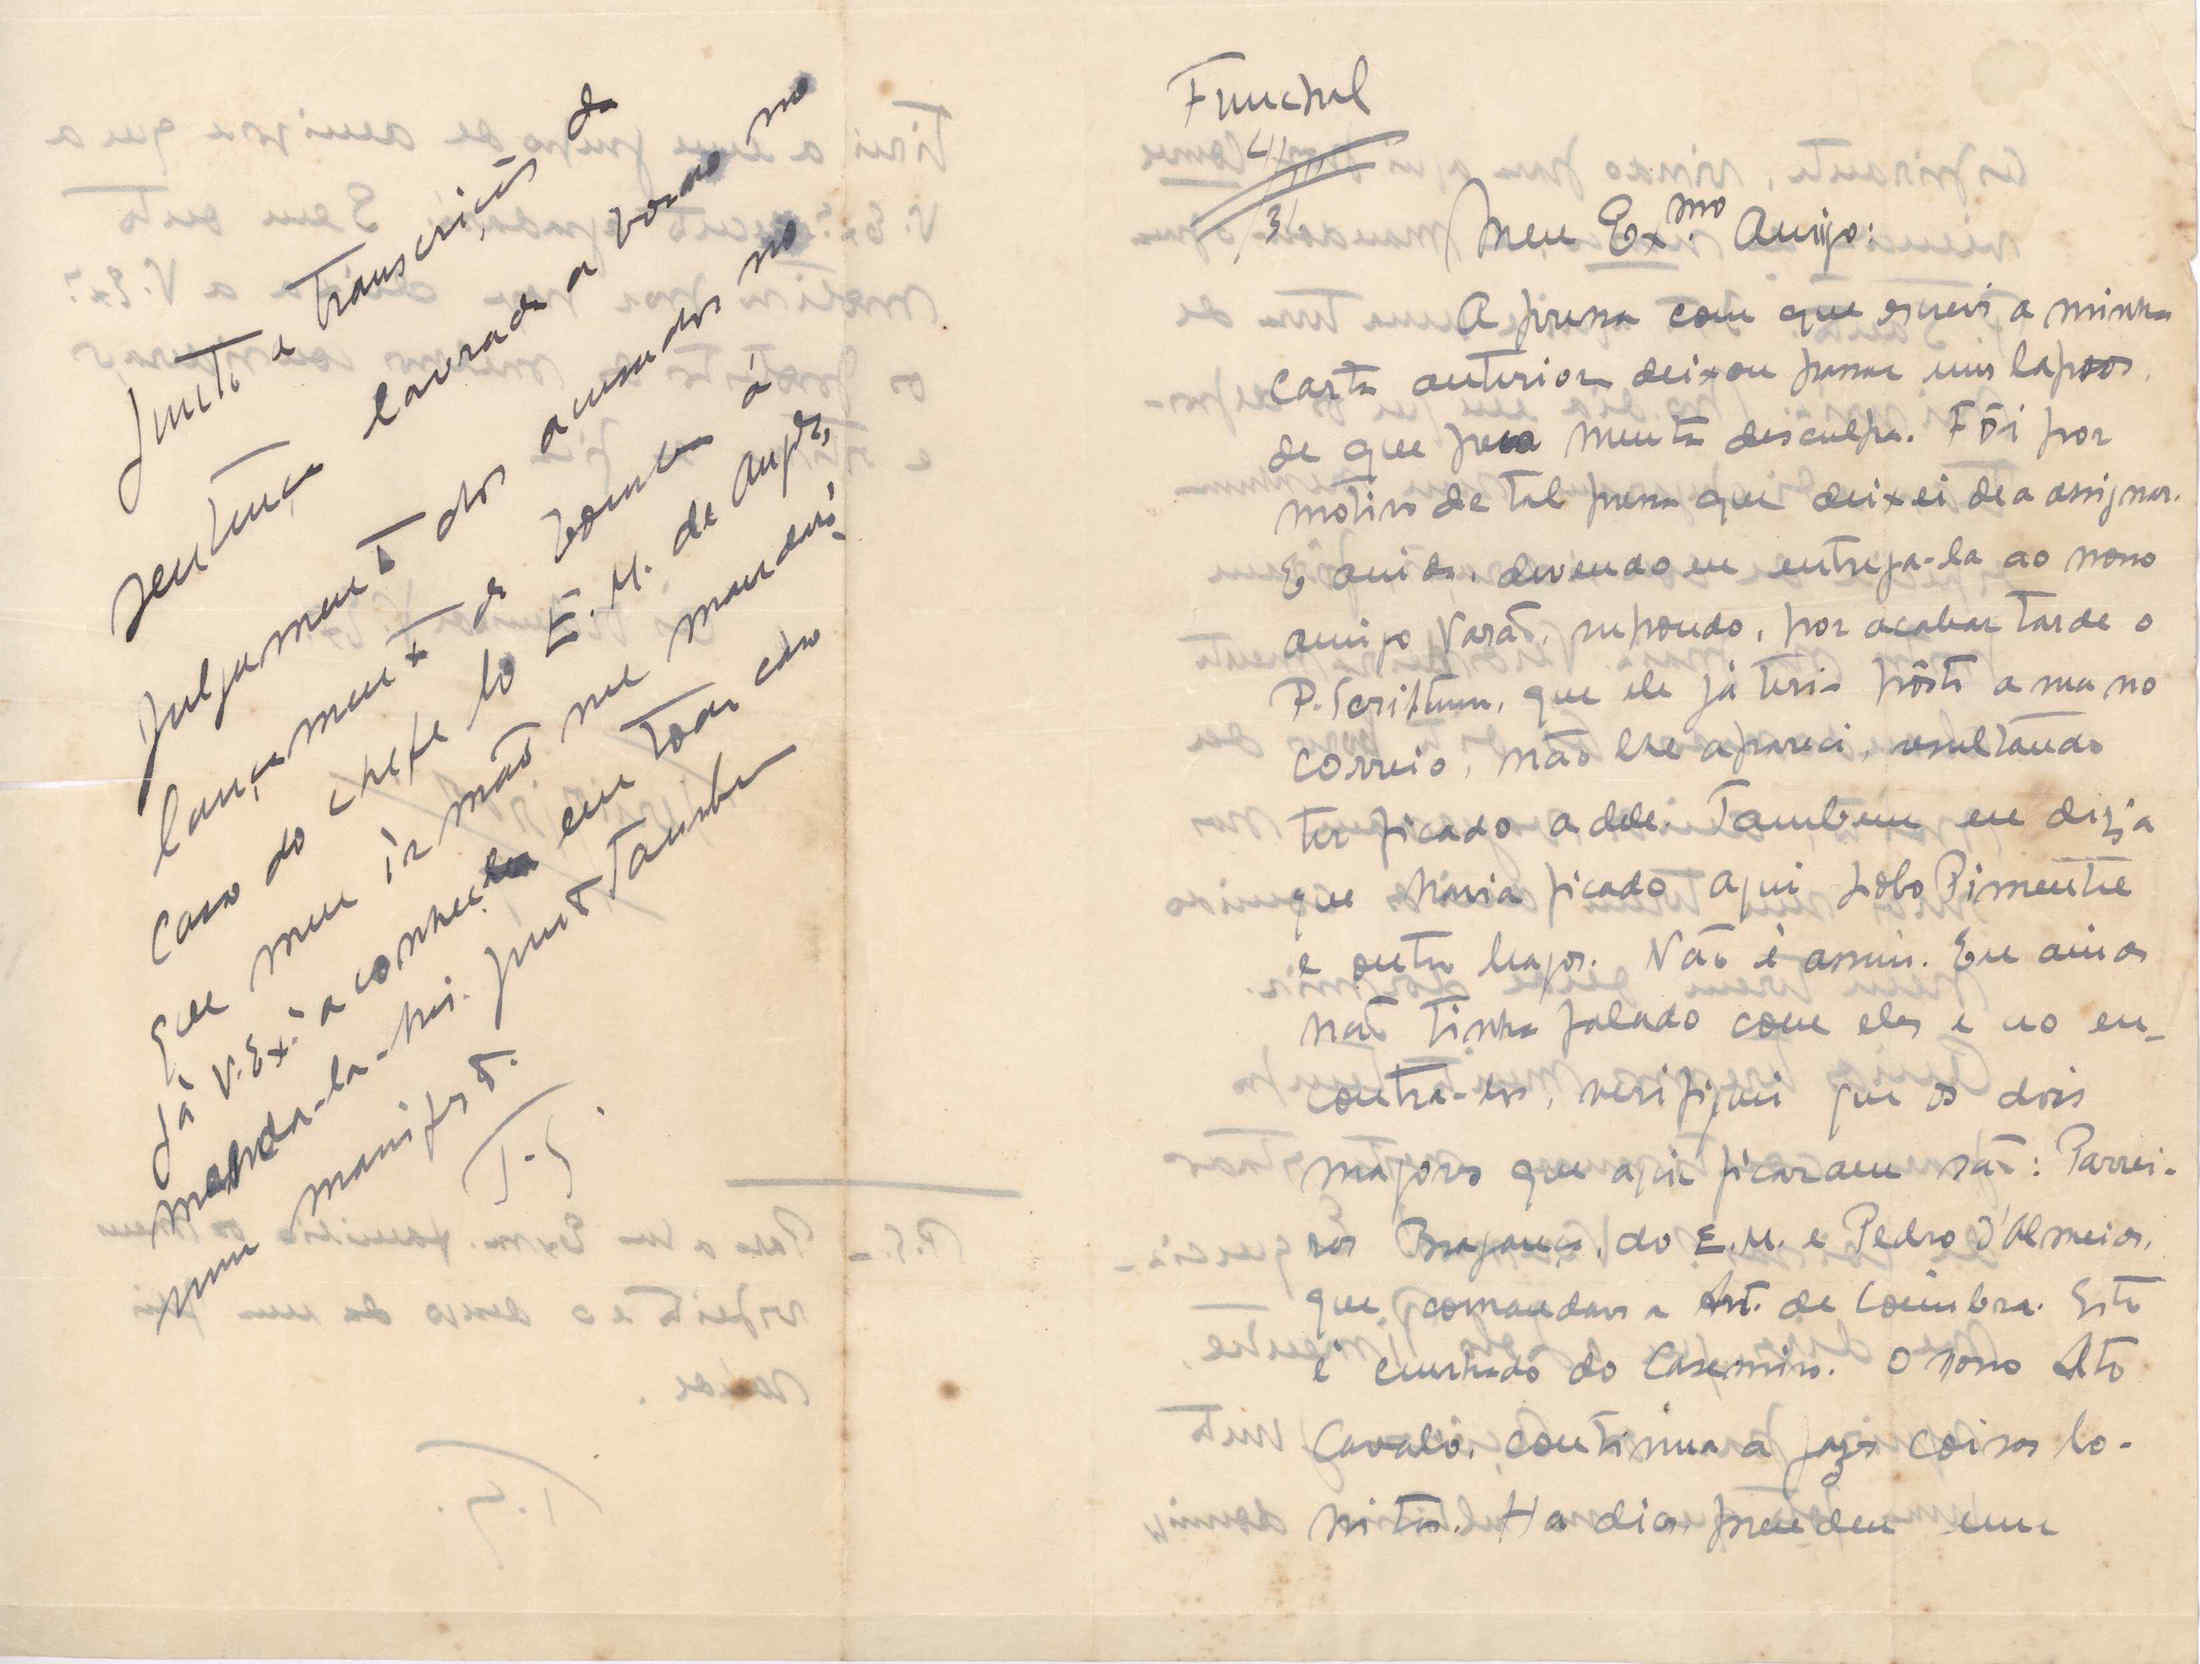 Funchal
Meu Ex.mo Amigo:
A pressa com que escrevi a minha
carta anterior deixou passar uns lapsos,
de que peço muita desculpa. Fôi por
motivo de tal pressa que deixei de a assignar.
E ainda, devendo eu entrega-la ao nosso
amigo Varão, supondo, por acabar tarde o
P. Scriptum, que ele já teria pôsto a sua no
correio, não lhe apareci, resultando
ter ficado a dele. Tambem eu dizia
que havia ficado aqui Lobo Pimentel
e outro major. Não é assim. Eu ainda
não tinha falado com eles e ao en-
contra-los, verifiquei que os dois
majores que aqui ficaram são: Parrei-
ras Bragança, do E.M. e Pedro d'Almeida,
que comandava Art. de Coimbra. Este
é cunhado do Casemiro. O nosso Alto
Cavalo, continua a fazer coisas bo-
nitas. Ha dias prendeu um
Junto a transcrição da
sentença lavrada a bordo no
julgamento dos acusados no
lançamento da bomba á
casa do chefe do E.M. de Angra,
que meu irmão me mandou.
Já V. Ex.ª a conhecerá em todo caso
manda-la-hei. Junto tambem
um manifesto.
T.S.